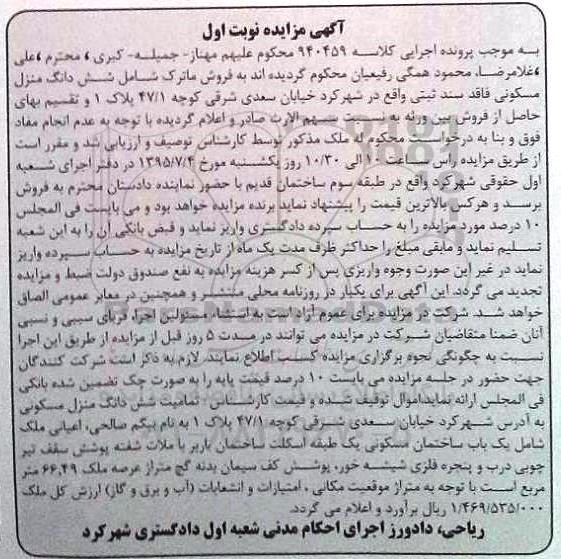 آگهی مزایده نوبت اول
به موجب پرونده اجرایی کلاسه ۹۴۰۴۵۹ محکوم علیهم مهناز- جمیله- کبری ، محترم ، علی
، غلامرضا، محمود همگی رفیعیان محکوم گردیده اند به فروش ماترک شامل شش دانگ منزل
مسکونی فاقد سند ثبتی واقع در شهرکرد خیابان سعدی شرقی کوچه ۴۷/۱ پلاک ۱ و تقسیم بهای
حاصل از فروش بین ورثه به نسبت سهم الارث صادر و اعلام گردیده با توجه به عدم انجام مفاد
فوق و بنا به درخواست محکوم له ملک مذکور توسط کارشناس توصیف و ارزیابی شد و مقرر است
از طریق مزایده راس ساعت ۱۰ الی ۱۰/۳۰ روز یکشنبه مورخ ۱۳۹۵/۷/۴ در دفتر اجرای شعبه
اول حقوقی شهرکرد واقع در طبقه سوم ساختمان قدیم با حضور نماینده دادستان محترم به فروش
برسد و هرکس بالاترین قیمت را پیشنهاد نماید برنده مزایده خواهد بود و می بایست فی المجلس
۱۰ درصد مورد مزایده را به حساب سپرده دادگستری واریز نماید و قبض بانکی آن را به این شعبه
تسلیم نماید و مابقی مبلغ را حداکثر ظرف مدت یک ماه از تاریخ مزایده به حساب سپرده واریز
نماید در غیر این صورت وجوه واریزی پس از کسر هزینه مزایده به نفع صندوق دولت ضبط و مزایده
تجدید می گردد. این آگهی برای یکبار در روزنامه محلی منتشر و همچنین در معابر عمومی الصاق
خواهد شد. شرکت در مزایده برای عموم آزاد است به استثناء مسئولین اجرا، قربای سببی و نسبی
آنان ضمنا متقاضیان شرکت در مزایده می توانند در مدت ۵ روز قبل از مزایده از طریق این اجرا
نسبت به چگونگی نحوه برگزاری مزایده کسب اطلاع نمایند. لازم به ذکر است شرکت کنندگان
جهت حضور در جلسه مزایده می بایست ۱۰ درصد قیمت پایه را به صورت چک تضمین شده بانکی
فی المجلس ارائه نمایند.اموال توقیف شده و قیمت کارشناس: تمامیت شش دانگ منزل مسکونی
به آدرس شهرکرد خیابان سعدی شرقی کوچه ۴۷/۱ پلاک ۱ به نام بیگم صالحی، اعیانی ملک
شامل یک باب ساختمان مسکونی یک طبقه اسکلت ساختمان باربر با ملات شفته پوشش سقف تیر
چوبی درب و پنجره فلزی شیشه خور، پوشش کف سیمان بدنه گچ متراژ عرصه ملک ۶۶،۴۹ متر
مربع است با توجه به متراژ موقعیت مکانی ، امتیازات و انشعابات (آب و برق و گاز) ارزش کل ملک
۱/۴۶۹/۵۳۵/۰۰۰ ریال برآورد و اعلام می گردد.
ریاحی، دادورز اجرای احکام مدنی شعبه اول دادگستری شهر کرد